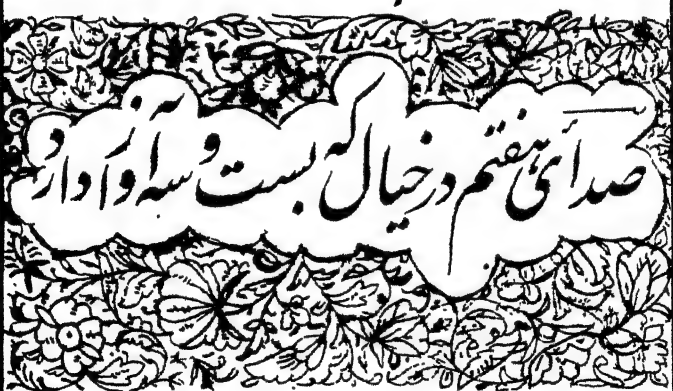 صدائی هفتم در خیال که بست و سه آواز دارد